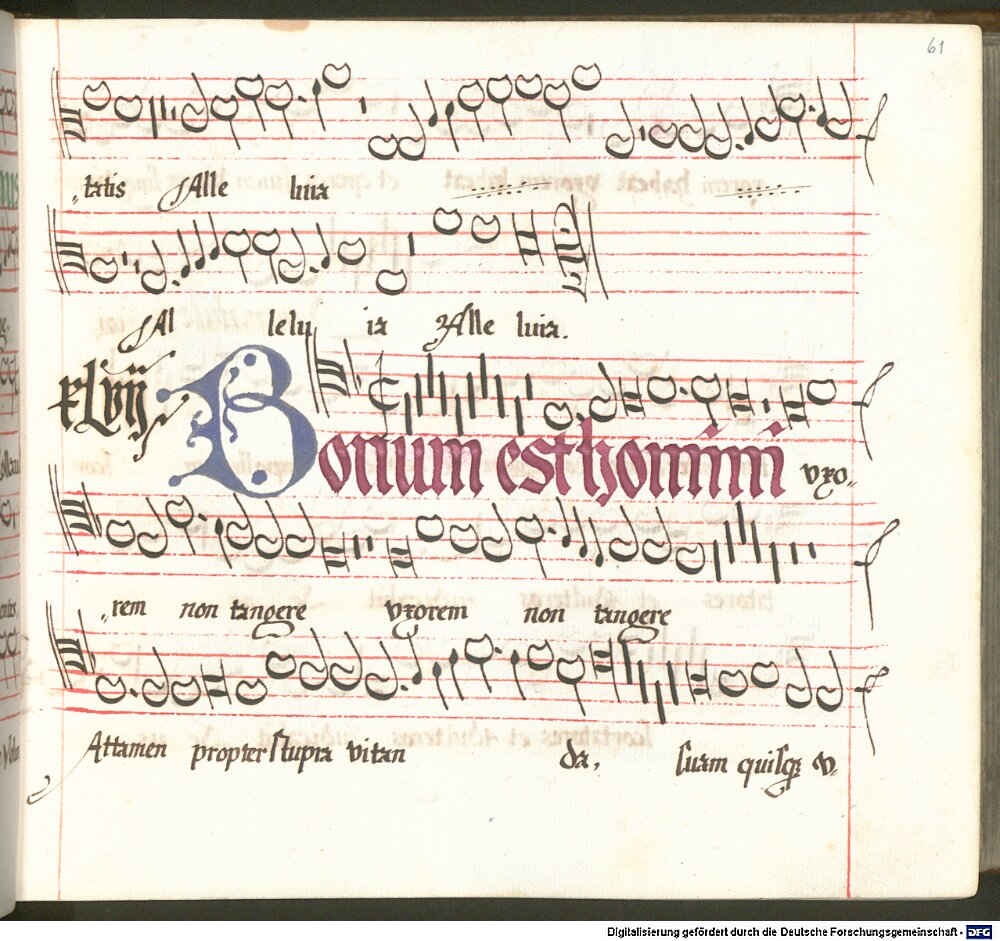 61
tatis Alle luia
Al lelu ia Alle luia.
xLvij
Bonum est homini vxo-
rem non tangere vxorem non tangere
Attamen propter stupra vitan da, suam quisqꝫ v-
Digitalisierung gefördert durch die Deutsche Forschungsgemeinschaft - DFG